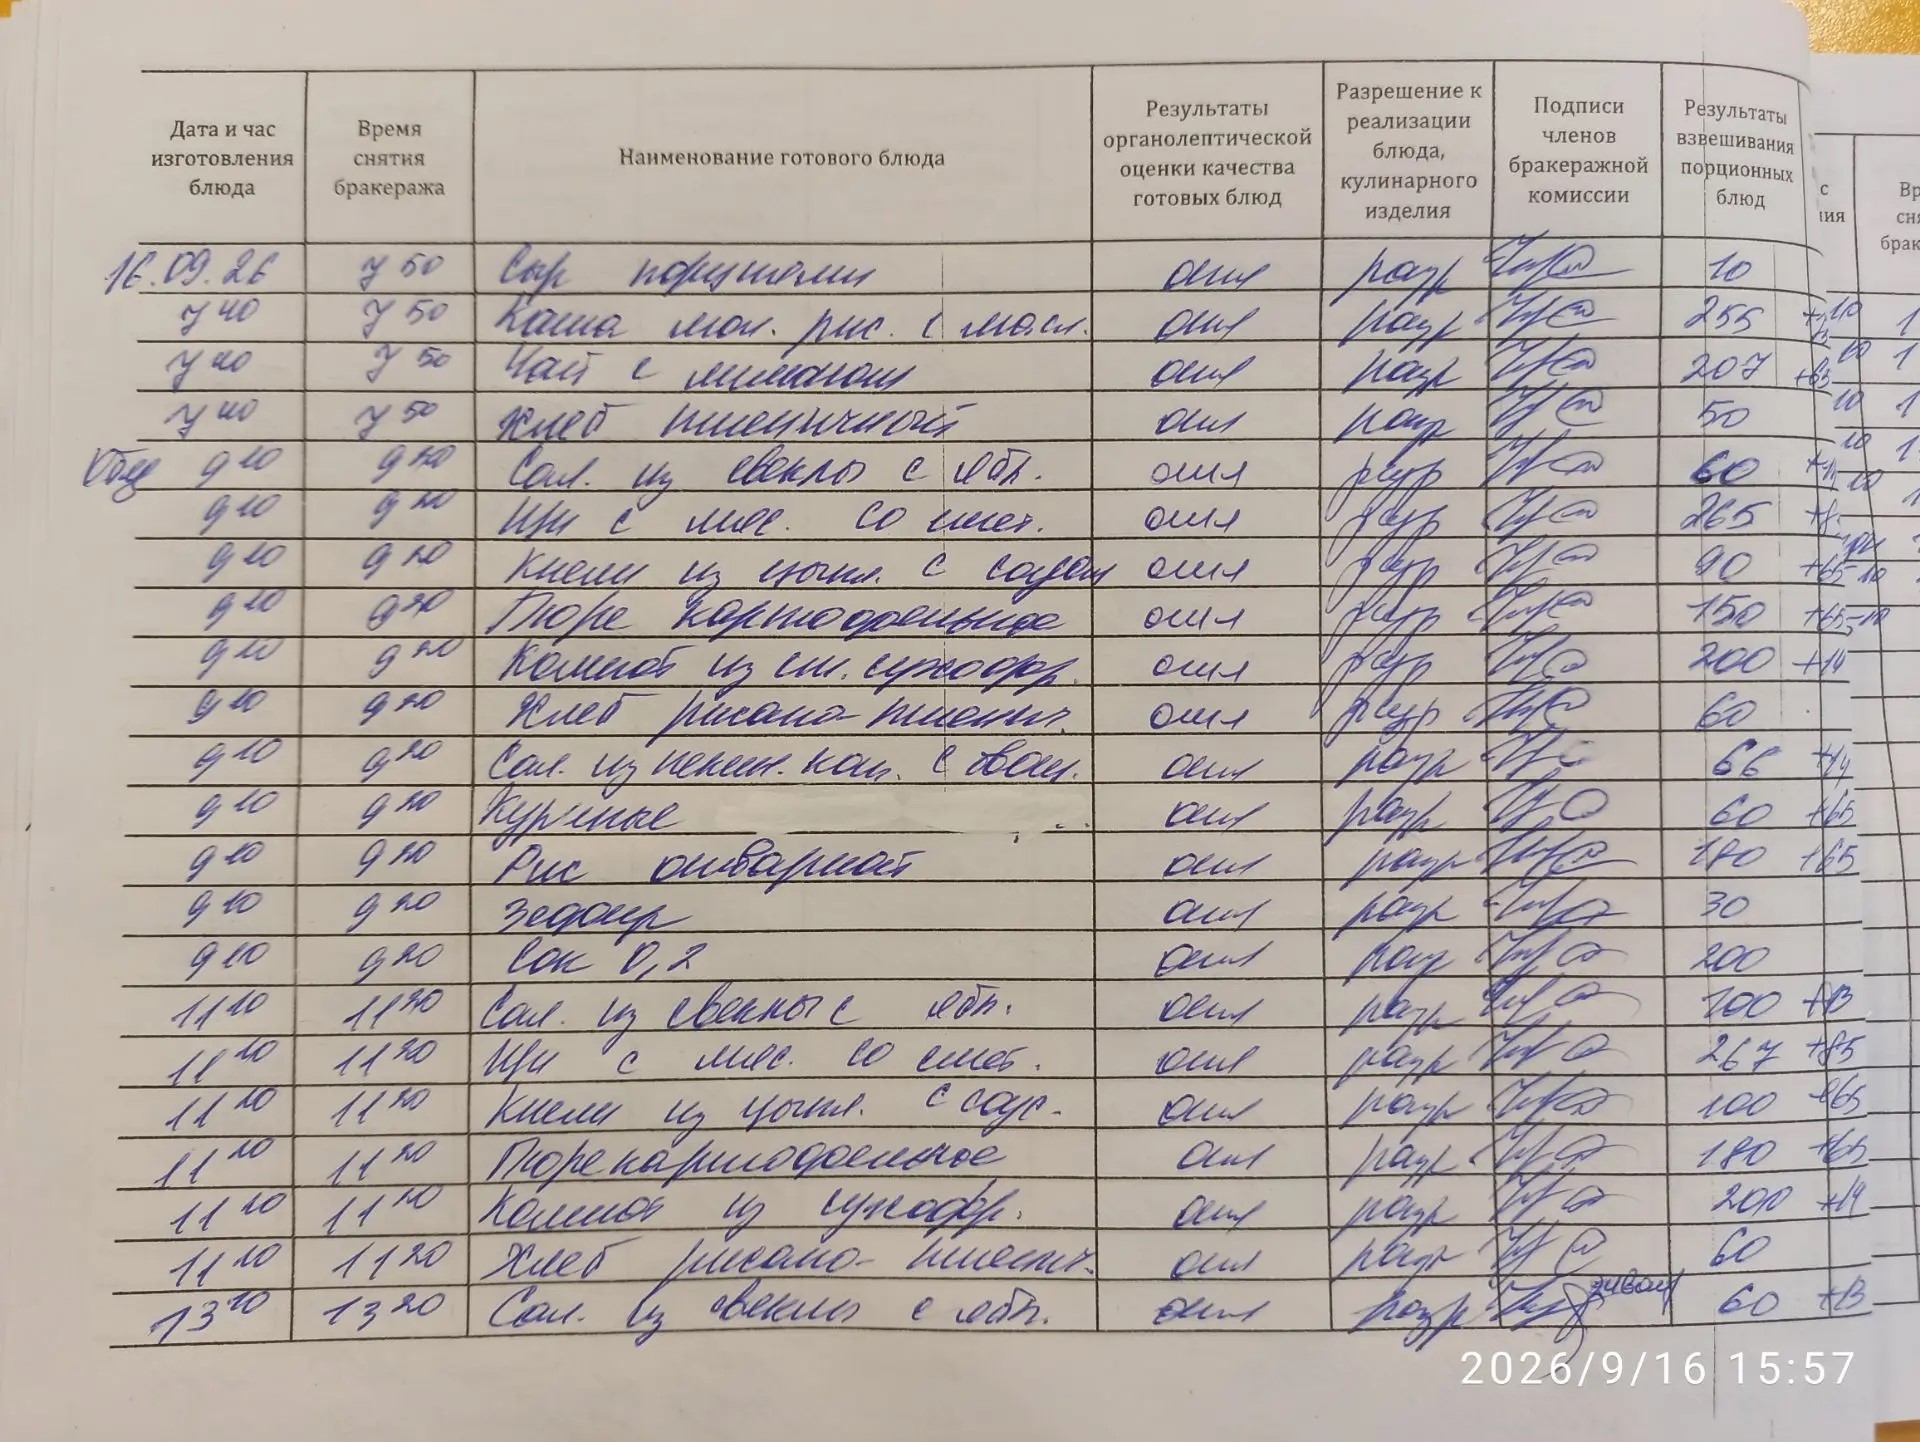 Дата и час изготовления блюда Время снятия бракеража Наименование готового блюда Результаты органолептической оценки качества готовых блюд Разрешение к реализации блюда, кулинарного изделия Подписи членов бракеражной комиссии Результаты взвешивания порционных блюд
16.09.26 7 50 Сыр порциями отл разр 10
7 40 7 50 Каша мол. рис. с масл. отл разр 255
7 40 7 50 Чай с лимоном отл разр 207
7 40 7 50 Хлеб пшеничный отл разр 50
Обед 9 10 9 20 Сал. из свеклы с ябл. отл разр 60
9 10 9 20 Щи с мяс. со смет. отл разр 265
9 10 9 20 Кнели из цыпл. с соусом отл разр 90 +65
9 10 9 20 Пюре картофельное отл разр 150 +65
9 10 9 20 Компот из см. сухофр. отл разр 200 +14
9 10 9 20 Хлеб ржано-пшенич. отл разр 60
9 10 9 20 Сал. из пекин. кап. с овощ. отл разр 66 +14
9 10 9 20 Куриные отл разр 60 +65
9 10 9 20 Рис отварной отл разр 180 +65
9 10 9 20 отл разр 30
9 10 9 20 Сок 0,2 отл разр 200
11 10 11 20 Сал. из свеклы с ябл. отл разр 100 +13
11 10 11 20 Щи с мяс. со смет. отл разр 267 +85
11 10 11 20 Кнели из цыпл. с соус. отл разр 100 +65
11 10 11 20 Пюре картофельное отл разр 180 +65
11 10 11 20 Компот из сухофр. отл разр 200 +14
11 10 11 20 Хлеб ржано-пшенич. отл разр 60
13 10 13 20 Сал. из свеклы с ябл. отл разр 60 +13
2026/9/16 15:57